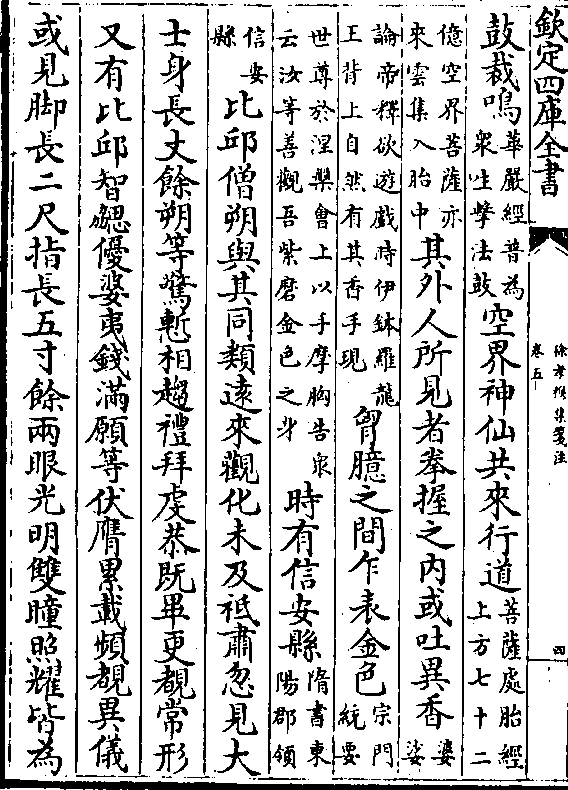 欽定四庫全書
徐孝穆集箋注
卷五
四
鼓裁鳴
華嚴經普為
衆生擊法鼓
空界神仙共來行道
菩薩處胎經
上方七十二
億空界菩薩亦
來雲集入胎中
其外人所見者拳握之内或吐異香
婆
娑
論帝釋欲遊戲時伊鉢羅龍
王背上自然有其香手現
胷臆之間乍表金色
宗門
統要
世尊於涅槃會上以手摩胸告衆
云汝等善觀吾紫磨金色之身
時有信安縣
隋書東
陽郡領
信安
縣
比邱僧朔與其同類遠來觀化未及祗肅忽見大
士身長丈餘朔等驚慙相趨禮拜虔恭既畢更覩常形
又有比邱智勰優婆夷錢滿願等伏膺累載頻覩異儀
或見脚長二尺指長五寸餘兩眼光明雙瞳照耀皆為